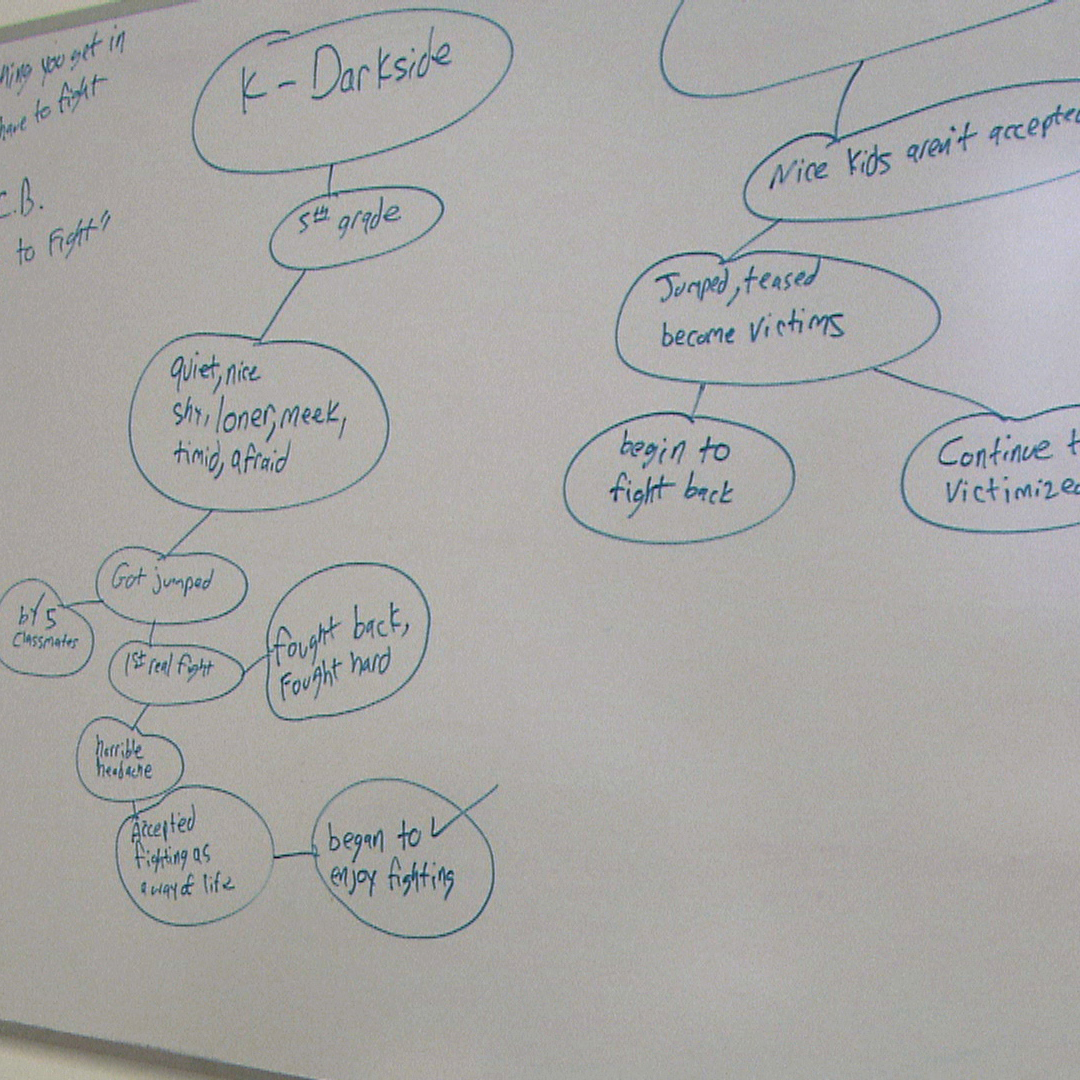 you get in
have to fight
C.B.
to Fight"
K - Darkside
5th grade
quiet, nice
shy, loner, meek,
timid, afraid
Got jumped
by 5
Classmates
1st real fight
fought back,
Fought hard
horrible
headache
Accepted
fighting as
a way of life
began to
enjoy fighting
Nice Kids aren't accepted
Jumped, teased
become Victims
begin to
fight back
Continue t
Victimized